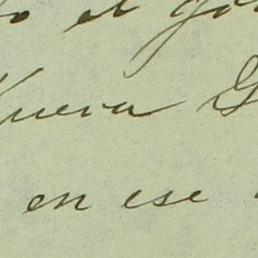 el
Nueva G
en ese